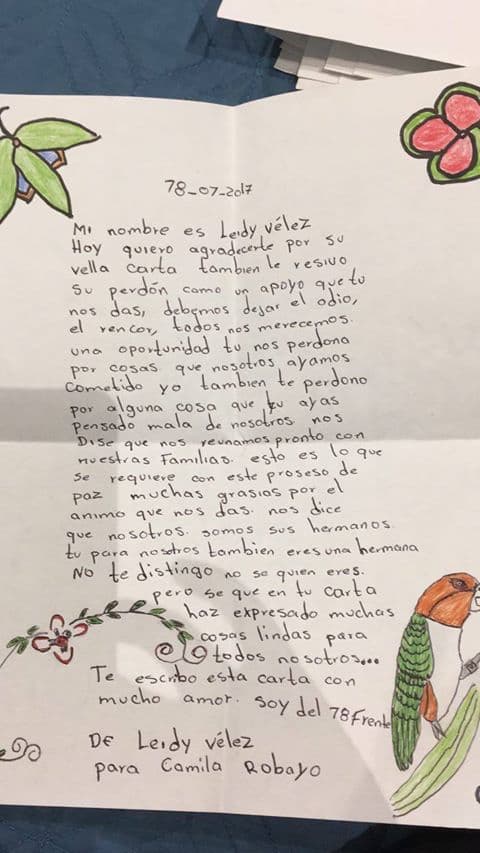 78-07-2017
Mi nombre es Leidy vélez
Hoy quiero agradecerte por su
vella carta tambien le resivo
su perdón como un apoyo que tu
nos das, debemos dejar el odio,
el rencor, todos nos merecemos.
una oportunidad tu nos perdona
por cosas que nosotros ayamos
Cometido yo tambien te perdono
por alguna cosa que tu ayas
pensado mala de nosotros nos
Dise que nos reunamos pronto con
nuestras Familias. esto es lo que
se requiere con este proseso de
paz muchas grasias por el
animo que nos das. nos dice
que nosotros. somos sus hermanos.
tu para nosotros tambien eres una hermana
NO te distingo no se quien eres.
pero se que en tu carta
haz expresado muchas
cosas lindas para
todos nosotros...
Te escribo esta carta con
mucho amor. soy del 78 Frente
DE Leidy vélez
para Camila Robayo